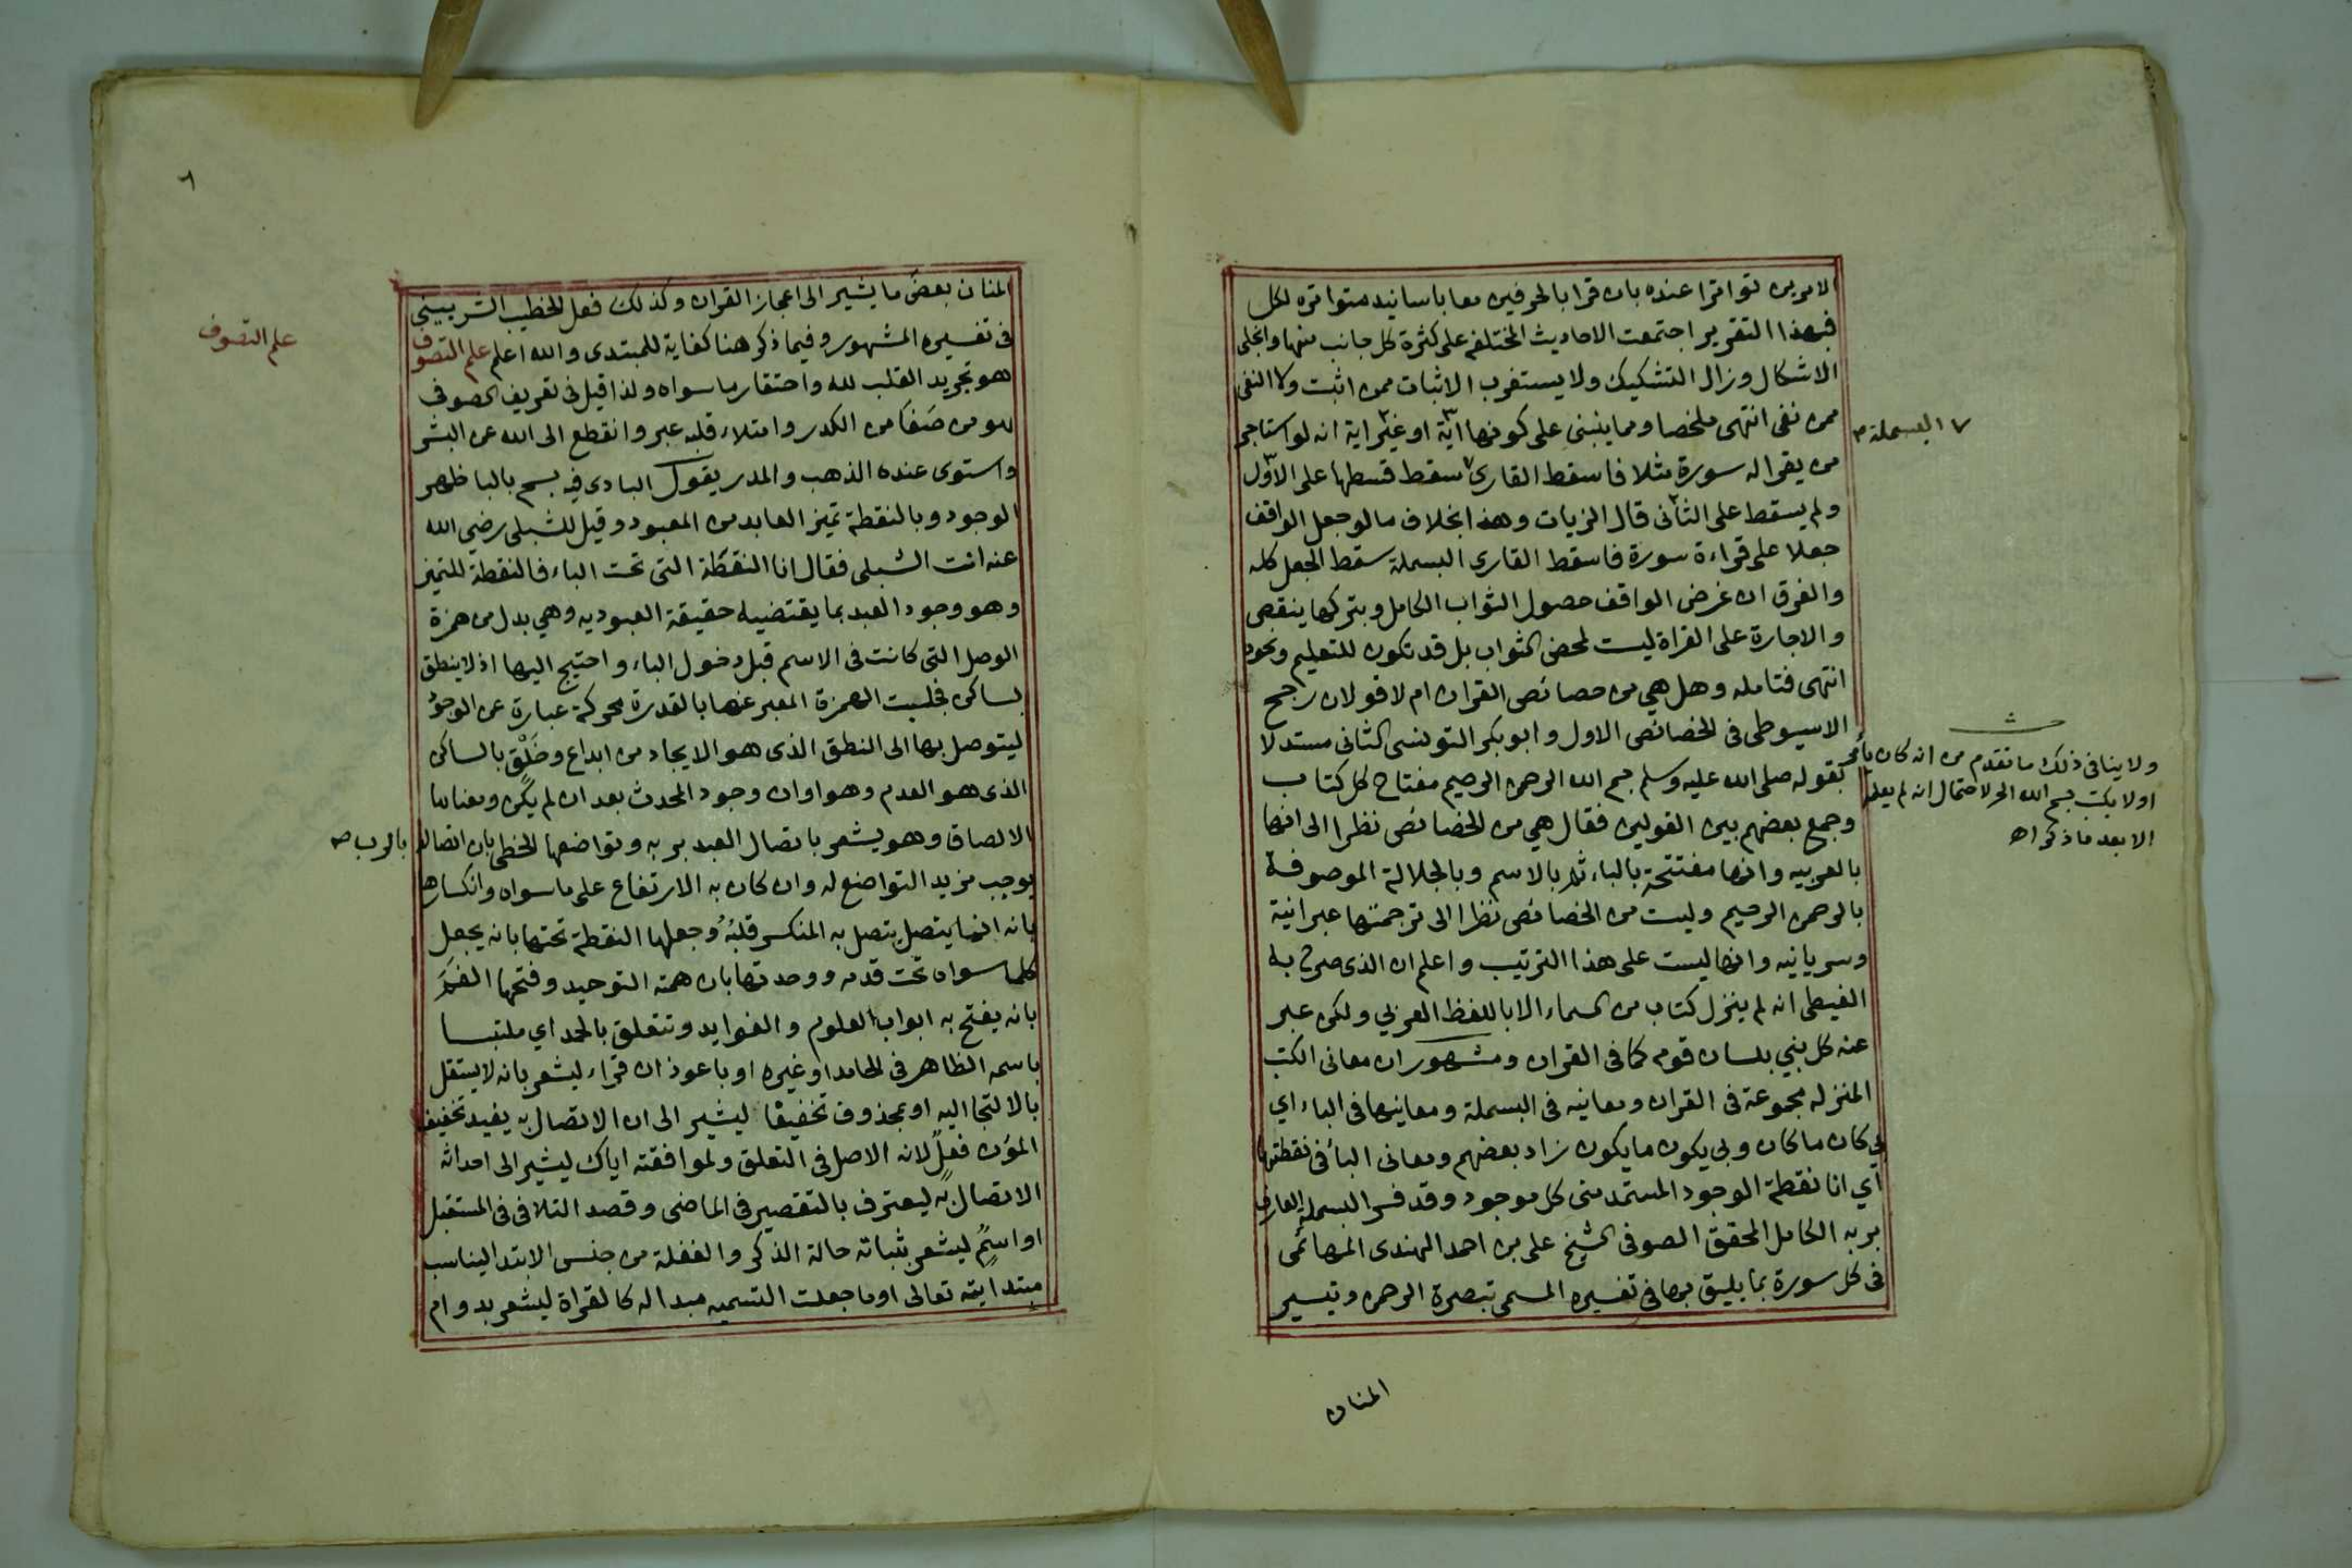 الامرين تواترا عنده بان قرا بالحرفين معا باسانيد متواتره لكل
فبهذا التقرير اجتمعت الاحاديث المختلفه على كثرة كل جانب منها وانجلى
الاشكال وزال التشكيك ولا يستغرب الاثبات ممن اثبت ولا النفى
ممن نفى انتهى ملخصا ومما ينبنى على كونها اية او غير اية انه لو استاجر
من يقرا له سورة مثلا فاسقط القارى سقط قسطها على الاول
البسملة
ولم يسقط على الثانى قال الزيات وهذا بخلاف ما لو جعل الواقف
جعلا على قراءة سورة فاسقط القارى البسملة سقط الجعل كله
والفرق ان غرض الواقف حصول الثواب الكامل وبتركها ينقص
والاجارة على القراة ليست لمحض الثواب بل قد تكون للتعليم ونحوه
انتهى فتامله وهل هي من خصائص القران ام لا قولان رجح
الاسيوطى فى الخصائص الاول وابو بكر التونسى الثانى مستدلا
بقوله صلى الله عليه وسلم بسم الله الرحمن الرحيم مفتاح كل كتاب
وجمع بعضهم بين القولين فقال هي من الخصائص نظرا الى انها
بالعربيه وانها مفتتحة بالباء ثم بالاسم وبالجلالة الموصوفة
بالرحمن الرحيم وليست من الخصائص نظرا الى ترجمتها عبرانية
وسريانيه وانها ليست على هذا الترتيب واعلم ان الذى صرح به
الغيطى انه لم ينزل كتاب من السماء الا باللفظ العربي ولكن عبر
عنه كل نبي بلسان قومه كما فى القران ومشهور ان معانى الكتب
المنزله مجموعة فى القران ومعانيه فى البسملة ومعانيها فى الباء اي
بي كان ما كان وبي يكون ما يكون زاد بعضهم ومعانى البا فى نقطتها
اي انا نقطة الوجود المستمد منى كل موجود وقد فسر البسملة العارف
بربه الكامل المحقق الصوفى الشيخ على بن احمد الهندى المهائمى
فى كل سورة بما يليق بها في تفسيره المسمى تبصرة الرحمن وتيسير
المنان
ولا ينافى ذلك ما تقدم من انه كان يأمر
اولا بكتب بسم الله الخ لاحتمال انه لم يعلم
الا بعد ما ذكر اه
٦
علم التصوف
المنان بعض ما يشير الى اعجاز القران وكذلك فعل الخطيب الشربيني
فى تفسيره المشهور وفيما ذكر هنا كفاية للمبتدى والله اعلم علم التصوف
هو تجريد القلب لله واحتقار ما سواه ولذا قيل فى تعريف الصوفى
هو من صفا من الكدر وامتلاء قلبه عبر وانقطع الى الله عن البشر
واستوى عنده الذهب والمدر يقول البادى فيه بسم بالبا ظهر
الوجود وبالنقطة تميز العابد من المعبود وقيل للشبلى رضي الله
عنه انت الشبلى فقال انا النقطة التى تحت الباء فالنقطة للتميز
وهو وجود العبد بما يقتضيه حقيقة العبوديه وهي بدل من همزة
الوصل التى كانت فى الاسم قبل دخول الباء واحتيج اليها اذ لا ينطق
بساكن فجلبت الهمزة المعبر عنها بالقدرة محركة عبارة عن الوجود
ليتوصل بها الى النطق الذى هو الايجاد من ابداع وخلق بالساكن
الذى هو العدم وهو اوان وجود المحدث بعد ان لم يكن ومعناها
الالصاق وهو يشعر باتصال العبد بربه وتواضعها الخطى بان اتصاله
بالرب
يوجب مزيد التواضع له وان كان به الارتفاع على ما سواه وانكسارها
بانه انما يتصل يتصل به المنكسر قلبه وجعلها النقطة تحتها بانه يجعل
كلما سواه تحت قدمه ووحدتها بان همته التوحيد وفتحها
بانه يفتح به ابواب العلوم والفوايد وتتعلق بالحمد اي ملتبسا
باسمه الظاهر فى المحامد او غيره او باعوذ ان قراء ليشعر بانه لا يستقل
بالالتجا اليه او بمحذوف تخفيفا ليشير الى ان الاتصال به يفيد تخفيف
المؤن فعل لانه الاصل فى التعلق ولموافقته اياك ليشير الى احداثه
الاتصال به ليعترف بالتقصير فى الماضى وقصد التلافى فى المستقبل
او اسم ليشعر بثباته حالة الذكر والغفلة من جنس الابتدا ليناسب
مبتدايته تعالى او ما جعلت التسميه مبدا له كالقراة ليشعر بدوام